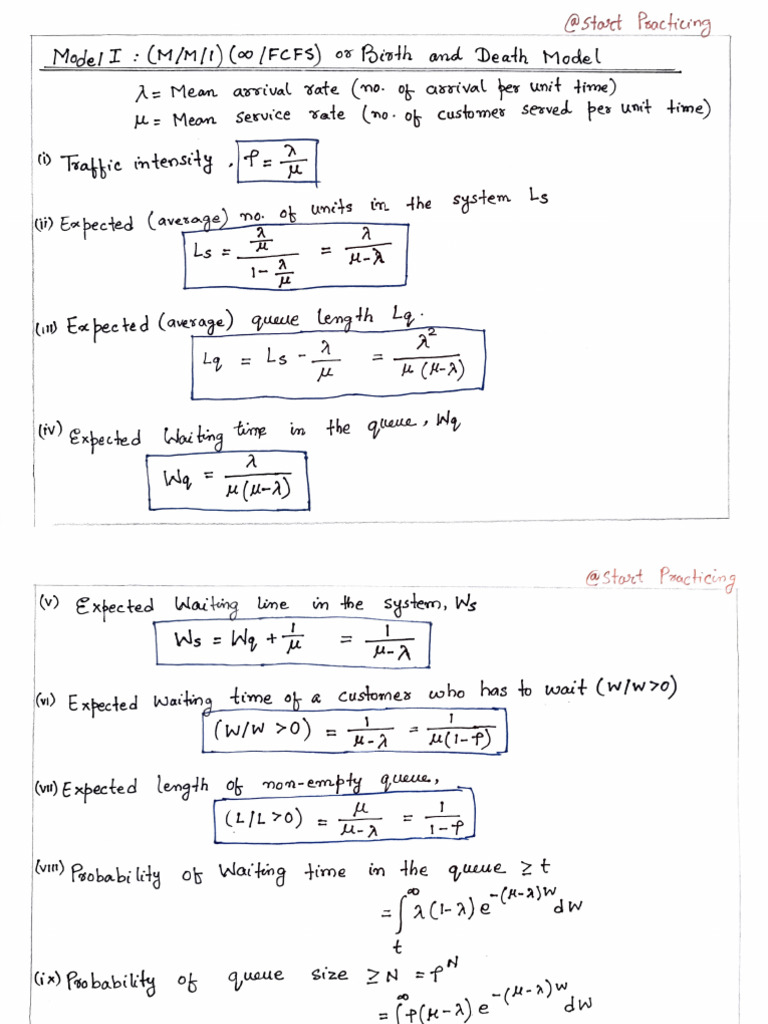 @Start Practicing
Model I : (M/M/1) (∞/FCFS) or Birth and Death Model
λ = Mean arrival rate (no. of arrival per unit time)
μ = Mean service rate (no. of customer served per unit time)
(i) Traffic intensity, ρ = λ/μ
(ii) Expected (average) no. of units in the system Ls
Ls = (λ/μ)/(1 - λ/μ) = λ/(μ-λ)
(iii) Expected (average) queue length Lq.
Lq = Ls - λ/μ = λ²/(μ(μ-λ))
(iv) Expected Waiting time in the queue, Wq
Wq = λ/(μ(μ-λ))
@Start Practicing
(v) Expected Waiting line in the system, Ws
Ws = Wq + 1/μ = 1/(μ-λ)
(vi) Expected waiting time of a customer who has to wait (W/W>0)
(W/W >0) = 1/(μ-λ) = 1/(μ(1-ρ))
(vii) Expected length of non-empty queue,
(L/L>0) = μ/(μ-λ) = 1/(1-ρ)
(viii) Probability of Waiting time in the queue ≥ t
= ∫_t^∞ λ(1-λ) e^{-(μ-λ)W} dW
(ix) Probability of queue size ≥ N = ρ^N
= ∫^∞ ρ(μ-λ) e^{-(μ-λ)W} dW